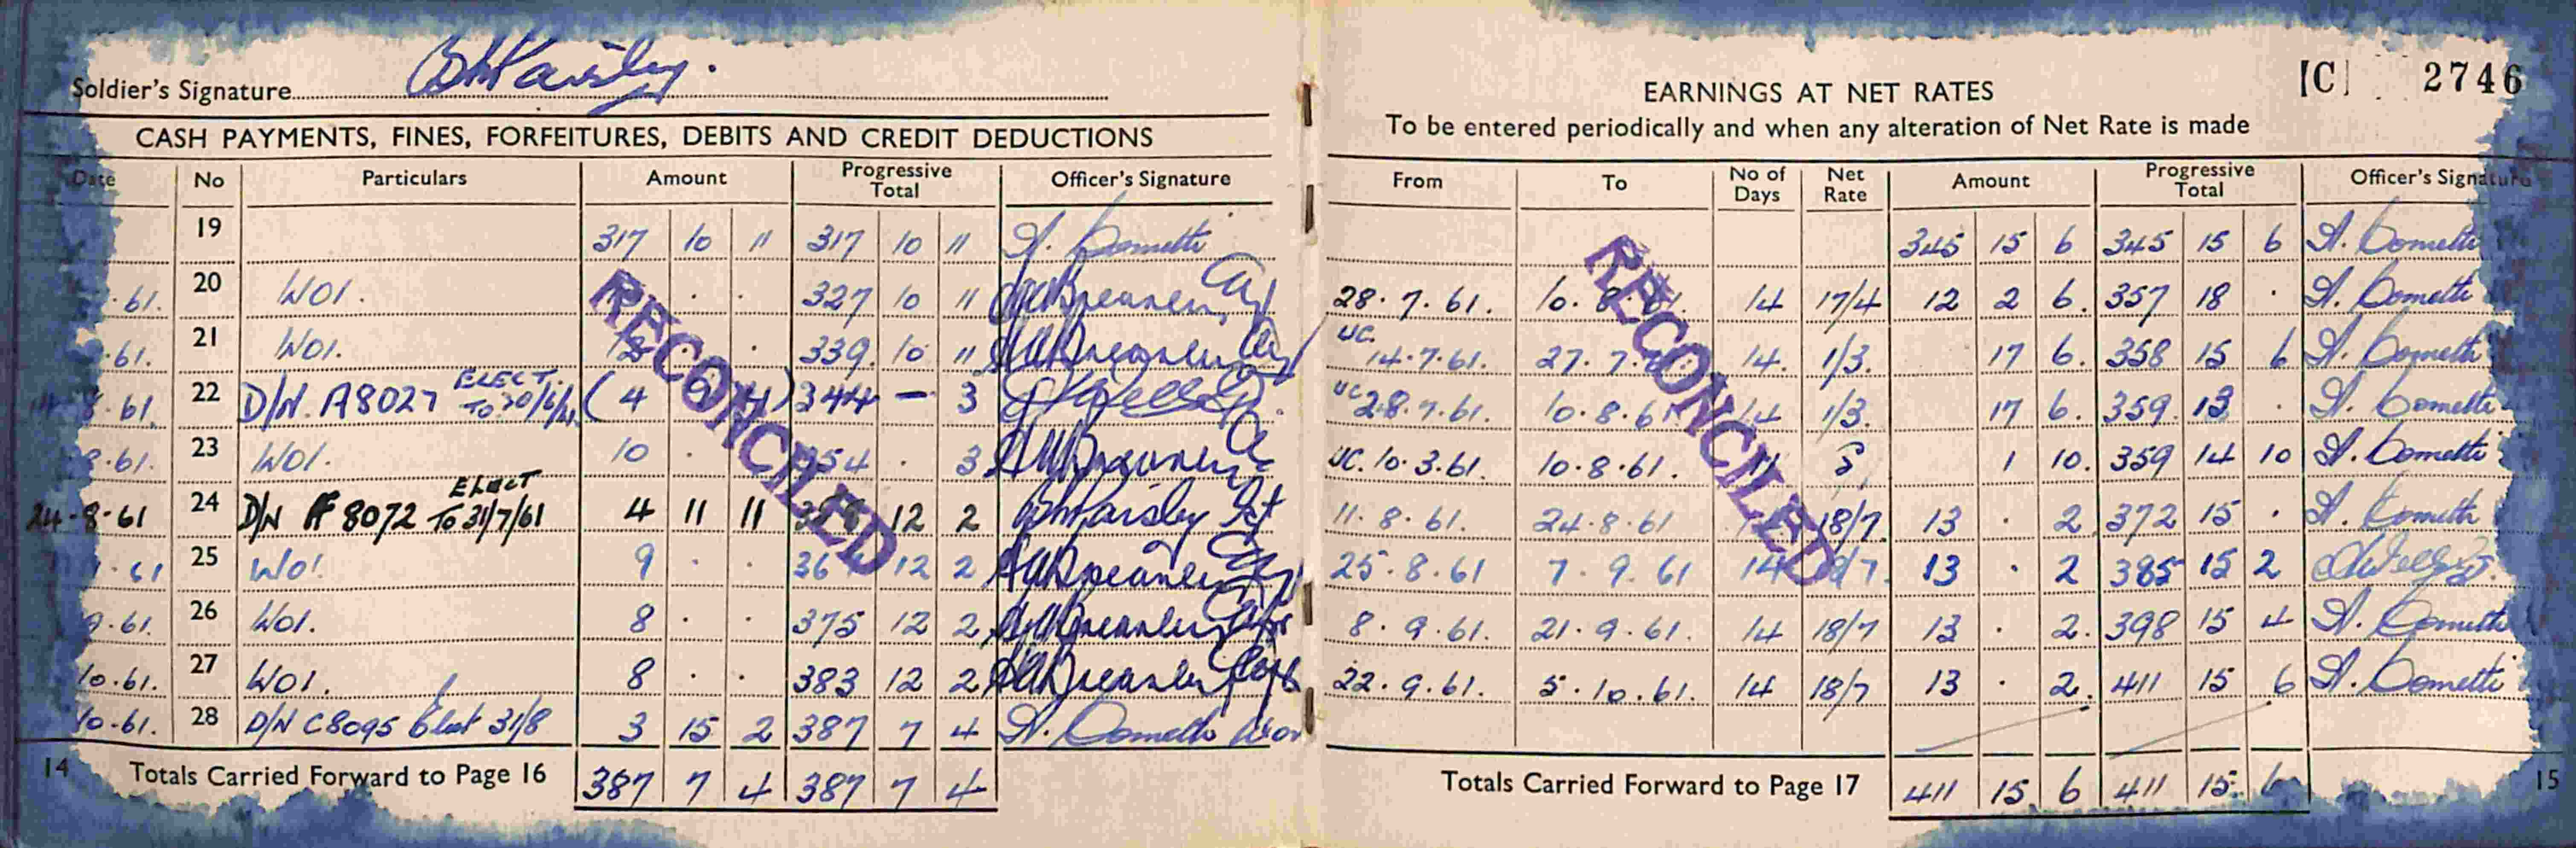 Soldier's Signature
CASH PAYMENTS, FINES, FORFEITURES, DEBITS AND CREDIT DEDUCTIONS
Date No Particulars Amount Progressive Total Officer's Signature
19 317 10 11 317 10 11
.61. 20 WO1. . . 327 10 11
.61. 21 WO1. 12 . . 339. 10 11
8.61. 22 D/N. A8027 ELECT TO 30/6/61 (4 9 4) 344 — 3
8.61. 23 WO1. 10 . . 354 . 3
24-8-61 24 D/N 8072 ELECT TO 31/7/61 4 11 11 12 2
.61 25 WO1 9 . . 12 2
9.61. 26 WO1. 8 . . 375 12 2
10.61. 27 WO1. 8 . . 383 12 2
10-61. 28 D/N C8095 Elect 31/8 3 15 2 387 7 4
RECONCILED
14 Totals Carried Forward to Page 16 387 7 4 387 7 4
[C] 2746
EARNINGS AT NET RATES
To be entered periodically and when any alteration of Net Rate is made
From To No of Days Net Rate Amount Progressive Total Officer's Signature
345 15 6 345 15 6
28.7.61. 10.8.61. 14 17/4 12 2 6. 357 18 .
UC. 14.7.61. 27.7. 14. 1/3. 17 6. 358 15 6
UC 28.7.61. 10.8.61 14 1/3. 17 6. 359. 13 .
UC. 10.3.61. 10.8.61. 1 10. 359 14 10
11.8.61. 24.8.61 18/7. 13 . 2 372 15 .
25.8.61 7.9.61 14 18/7. 13 . 2 385 15 2
8.9.61. 21.9.61. 14 18/7 13 . 2. 398 15 4
22.9.61. 5.10.61. 14 18/7 13 . 2. 411 15 6
RECONCILED
Totals Carried Forward to Page 17 411 15 6 411 15 6
15